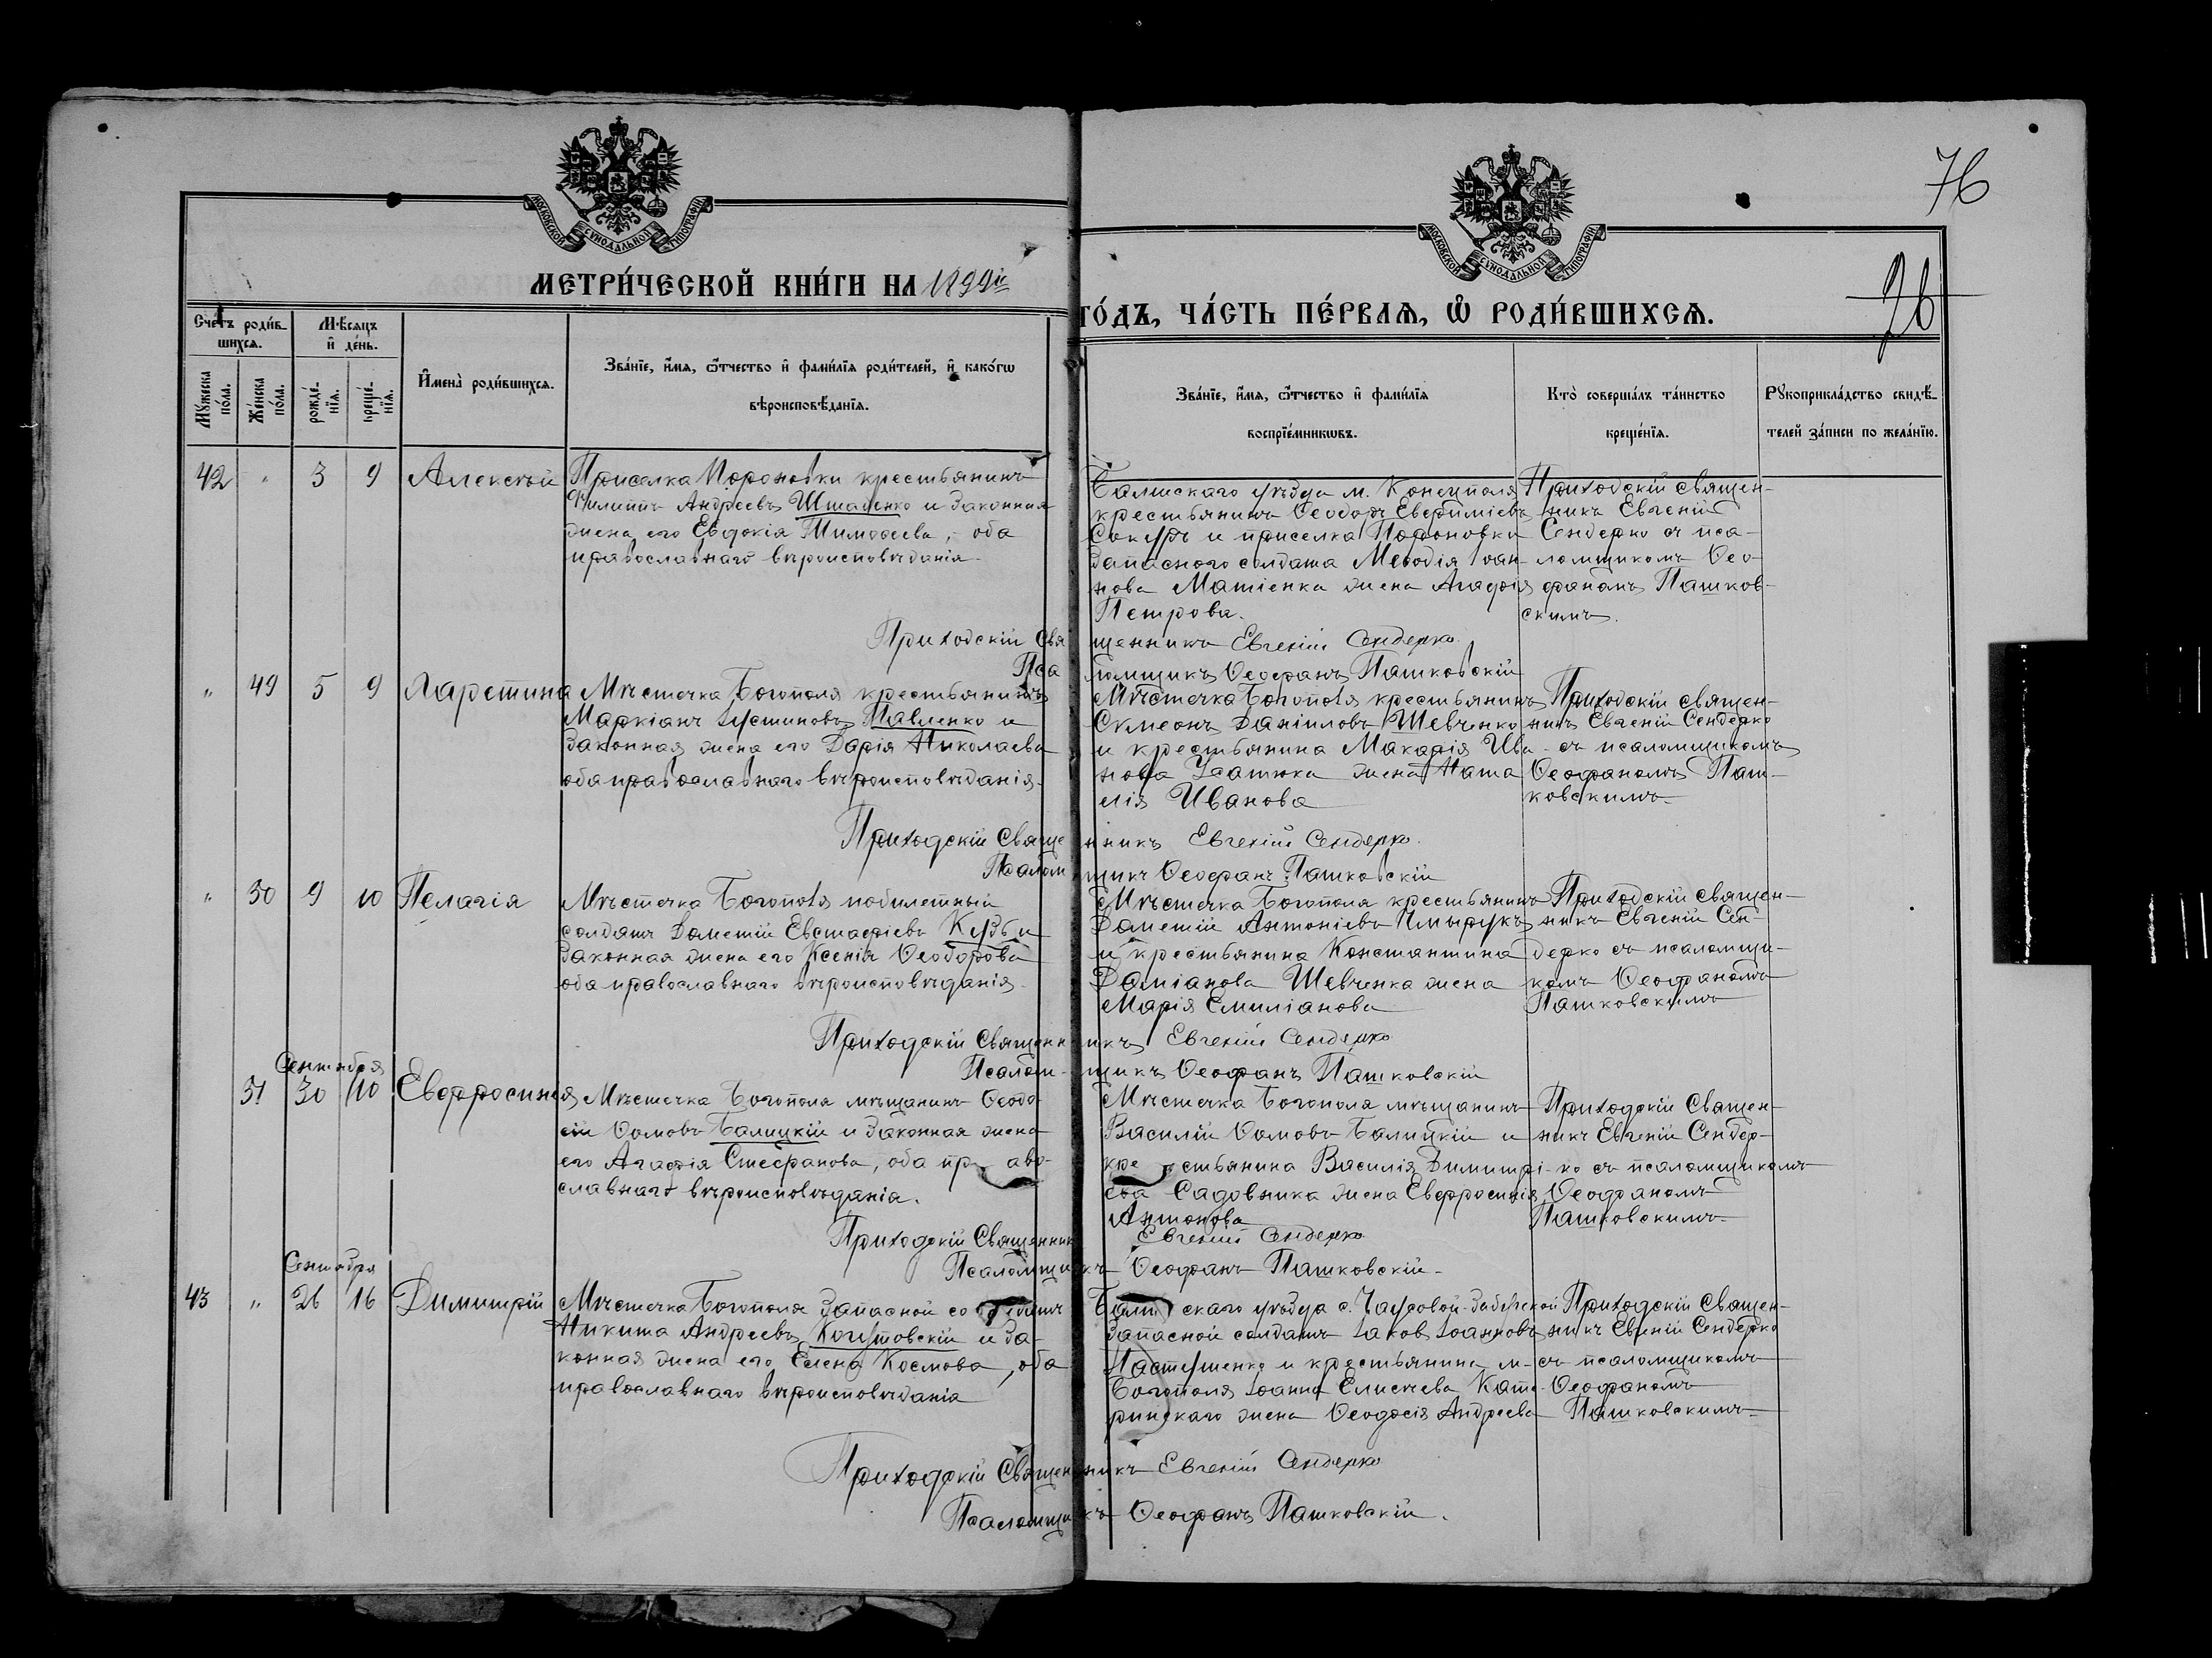 76
76
МОСКОВСКОЙ СѴНОДАЛЬНОЙ ТИПОГРАФІИ
МОСКОВСКОЙ СѴНОДАЛЬНОЙ ТИПОГРАФІИ
МЕТРИ́ЧЕСКОЙ КНИ́ГИ НА 1899й
ГО́ДЪ, ЧА́СТЬ ПЕ́РВАЯ, Ѡ РОДИ́ВШИХСЯ.
Сче́тъ роди́в-
шихся.
Мѣсяцъ
и де́нь.
Мꙋ́жеска
по́ла.
Же́нска
по́ла.
рожде́-
нїя.
креще́-
нїя.
Имена̀ роди́вшихся.
Зва́нїе, и́мя, ѻ́тчество и фами́лїя роди́телей, и како́гѡ
вѣроисповѣ́данїя.
Зва́нїе, и́мя, ѻ́тчество и фами́лїя
воспрїе́мникѡвъ.
Кто̀ соверша́лъ та́инство
креще́нїя.
Рꙋкоприкла́дство свидѣ́-
телей за́писи по жела́нїю.
42 " 3 9 Алексѣй
Приселка Пороновки крестьянинъ
Филиппъ Андреевъ и законная
жена его Евдокія Тимоѳеева, оба
православнаго вѣроисповѣданія
Балтскаго уѣзда м. Конецполя
крестьянинъ Ѳеодоръ Евѳиміевъ
Сокуръ и приселка Пороновки
запаснаго солдата Меѳодія Іоан-
нова Матіенка жена Агафія
Петрова.
Приходскій священ-
никъ Евгеній
Сендерко съ пса-
ломщикомъ Ѳео-
фаномъ Пашков-
скимъ.
Приходскій Священникъ Евгеній Сендерко
Псаломщикъ Ѳеофанъ Пашковскій
" 49 5 9 Харетина
Мѣстечка Богополя крестьянинъ
Маркіанъ Іустиновъ Павленко и
законная жена его Дарія Николаева
оба православнаго вѣроисповѣданія.
Мѣстечка Богополя крестьянинъ
Симеонъ Даніиловъ Шевченко
и крестьянина Макарія Ива-
нова Усатюка жена Ната
лія Иванова
Приходскій священ-
никъ Евгеній Сендерко
съ псаломщикомъ
Ѳеофаномъ Паш-
ковскимъ
Приходскій Священникъ Евгеній Сендерко.
Псаломщикъ Ѳеофанъ Пашковскій
" 50 9 10 Пелагія
Мѣстечка Богополя
солдатъ Дометій Евстафіевъ Кузь и
законная жена его Ксенія Ѳеодорова
оба православнаго вѣроисповѣданія.
Мѣстечка Богополя крестьянинъ
Дометій Антоніевъ
и крестьянина Константина
Даміанова Шевченка жена
Марія Емиліанова
Приходскій священ-
никъ Евгеній Сен-
дерко съ псаломщи-
комъ Ѳеофаномъ
Пашковскимъ
Приходскій Священникъ Евгеній Сендерко
Псаломщикъ Ѳеофанъ Пашковскій
Сентября
51 30 10 Евфросинія
Мѣстечка Богополя мѣщанинъ Ѳеодо-
сій Ѳомовъ Балицкій и законная жена
его Агафія Стефанова, оба право-
славнаго вѣроисповѣданія.
Мѣстечка Богополя мѣщанинъ
Василій Ѳомовъ Балицкій и
крестьянина Василія Димитрі-
ева Садовника жена Евфросинія
Антонова
Приходскій Священ-
никъ Евгеній Сендер-
ко съ псаломщикомъ
Ѳеофаномъ
Пашковскимъ
Приходскій Священникъ Евгеній Сендерко
Псаломщикъ Ѳеофанъ Пашковскій
Сентября
43 " 26 16 Димитрій
Мѣстечка Богополя запасной солдатъ
Никита Андреевъ Когутовскій и за-
конная жена его Елена Космова, оба
православнаго вѣроисповѣданія
Балтскаго уѣзда с. Чаусовой
запасной солдатъ Іаковъ Іоанновъ
и крестьянина м.
Богополя Іоанна Елисеева Кате-
ринскаго жена Ѳеодосія Андреева
Приходскій Священ-
никъ Евгеній Сендерко
съ псаломщикомъ
Ѳеофаномъ
Пашковскимъ
Приходскій Священникъ Евгеній Сендерко
Псаломщикъ Ѳеофанъ Пашковскій.